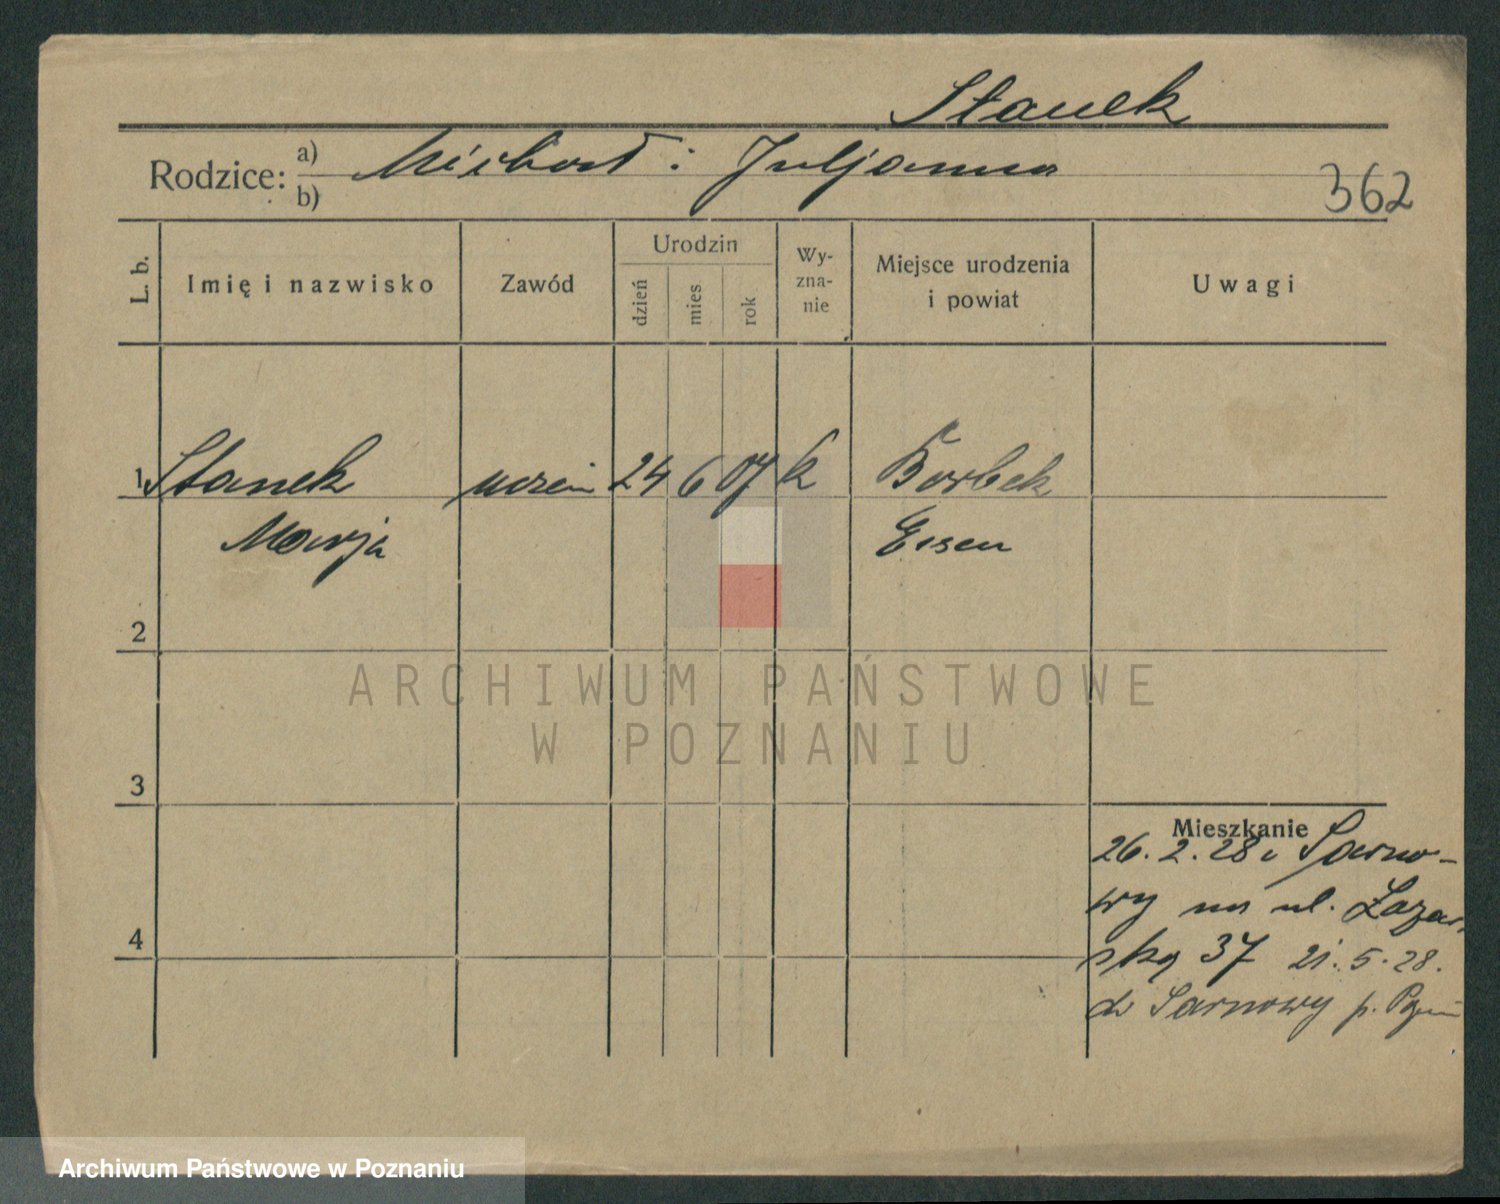 Stanek
Rodzice: a) Michał i Juljanna
b)
362
L. b.
Imię i nazwisko
Zawód
Urodzin
dzień
mies
rok
Wy-
zna-
nie
Miejsce urodzenia
i powiat
Uwagi
1 Stanek uczen 24 6 07 k Borbek
Marja Essen
2
3
4
Mieszkanie
26. 2. 28 z Sarno-
wy na ul. Łazar
ską 37 21. 5. 28.
do Sarnowy p.
ARCHIWUM PAŃSTWOWE
W POZNANIU
Archiwum Państwowe w Poznaniu